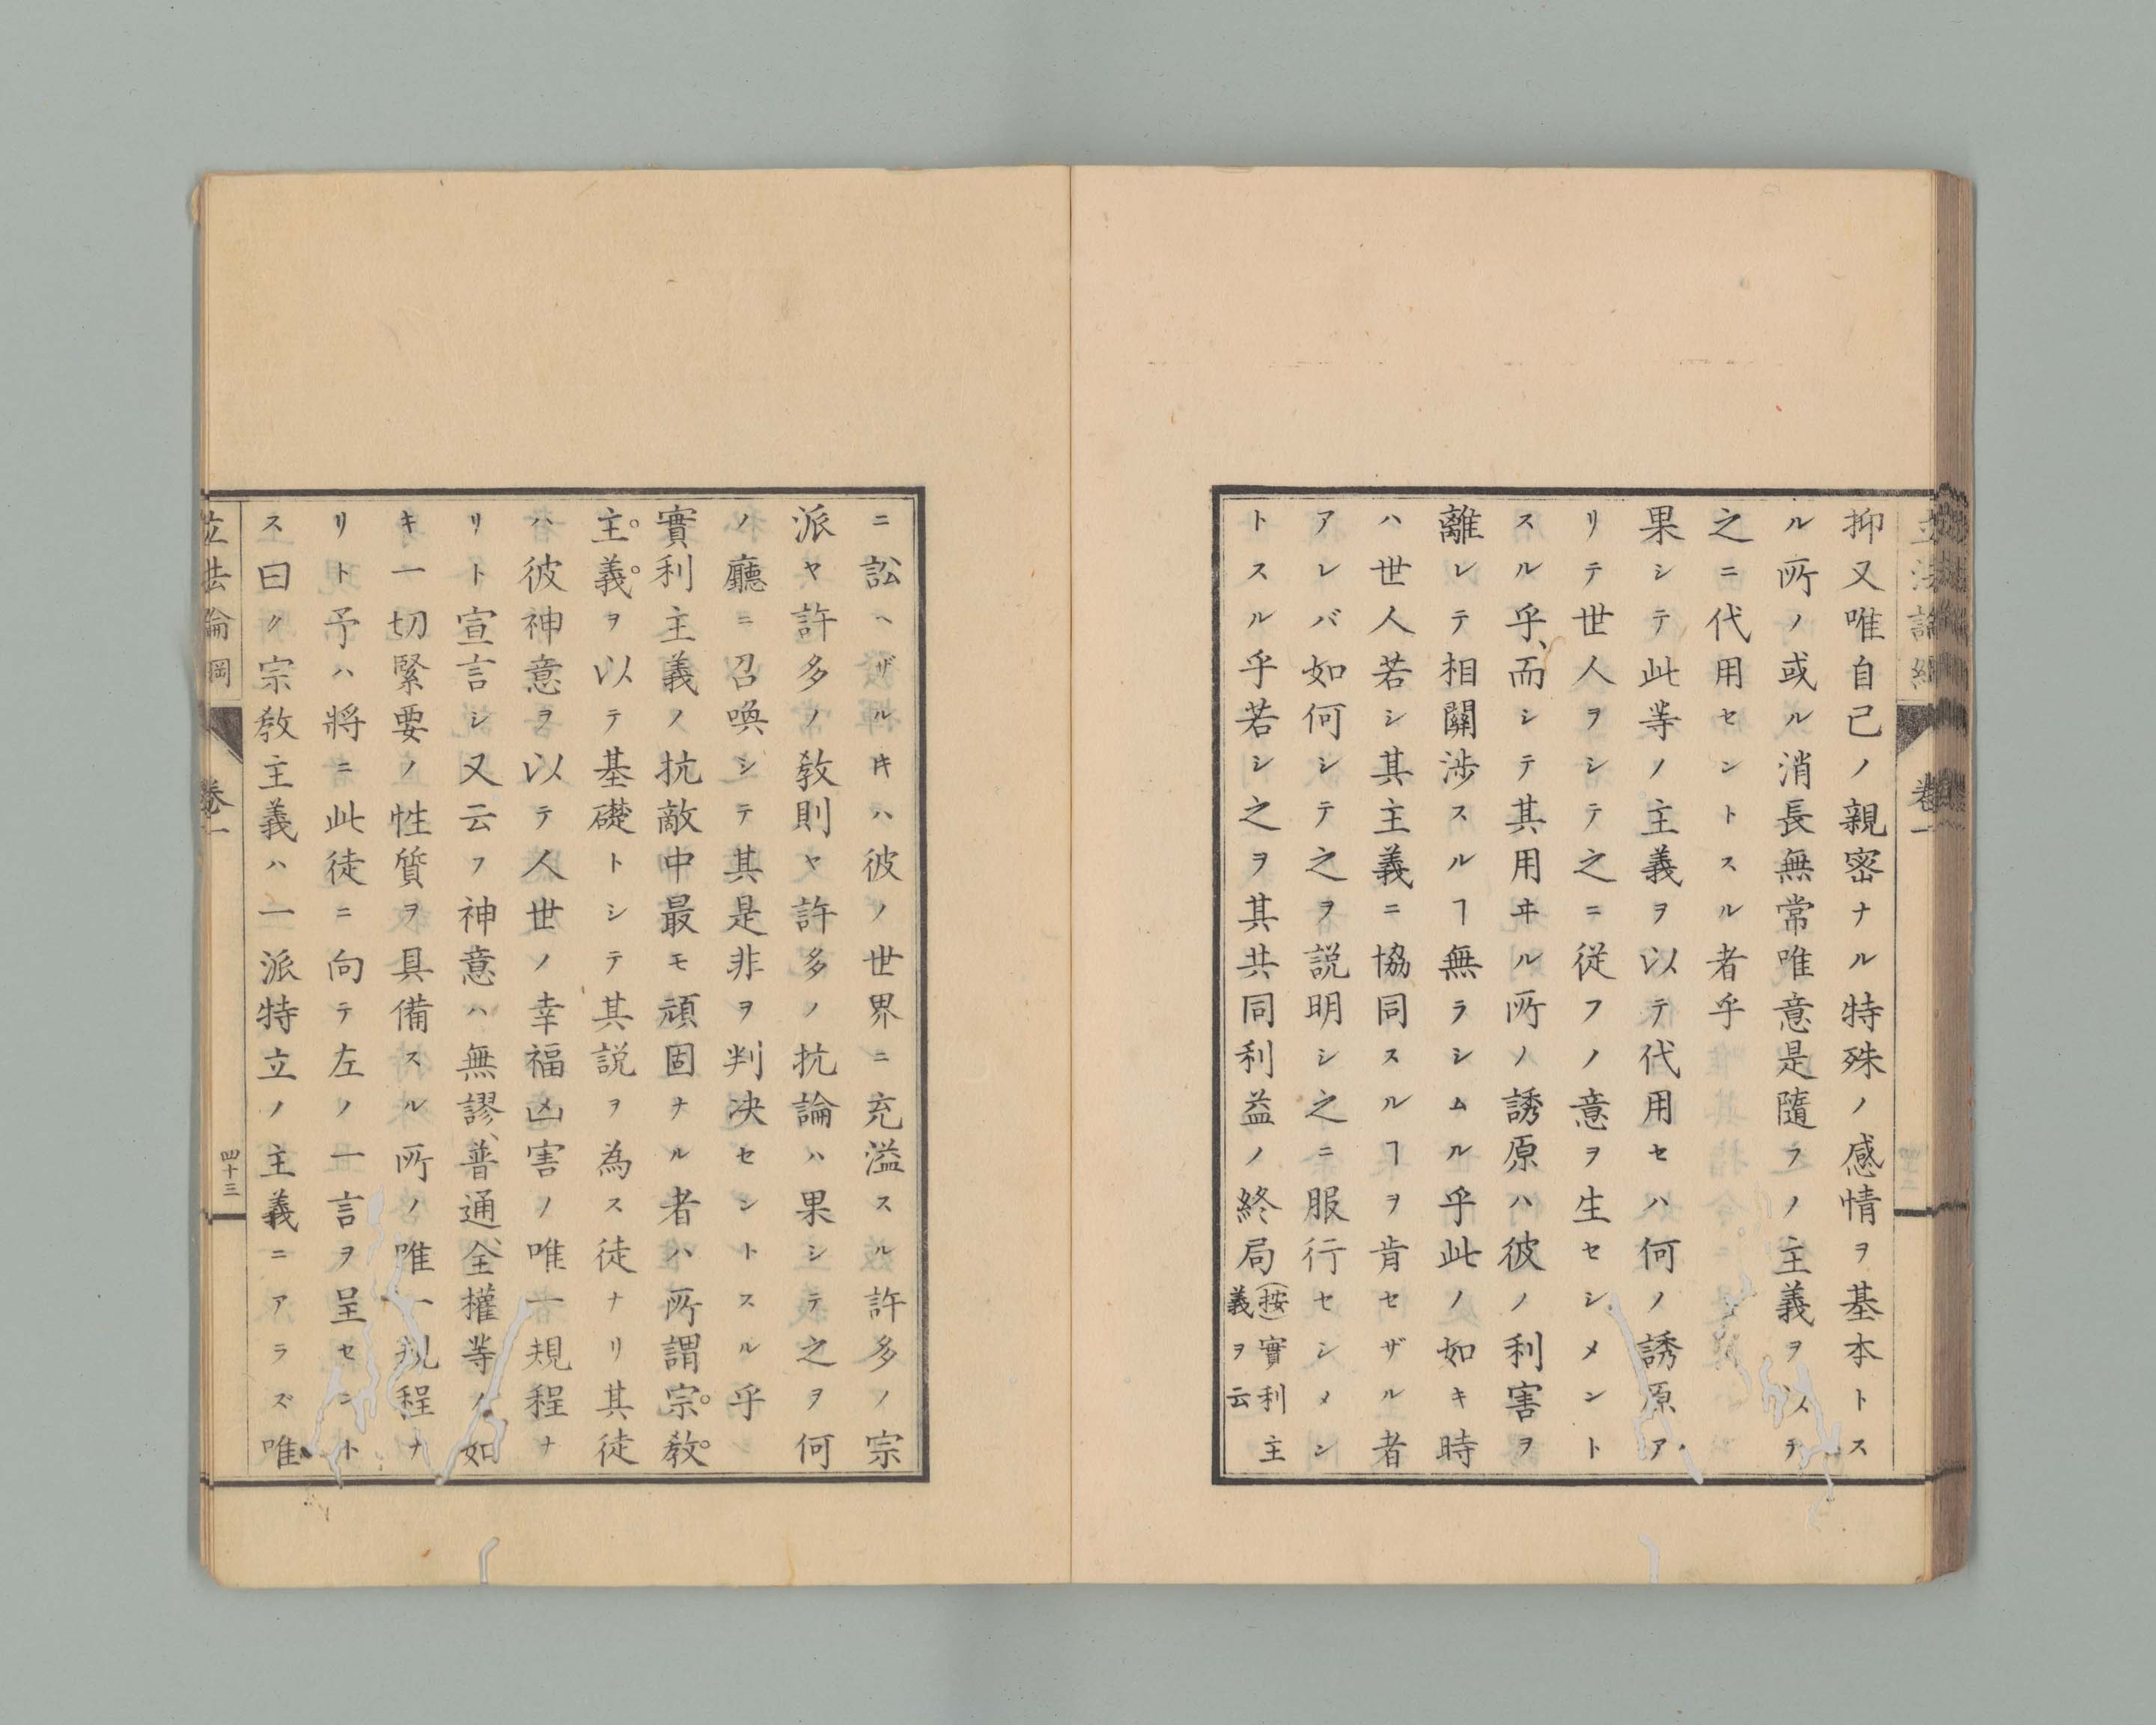 立法論綱
卷一
抑又唯自己ノ親密ナル特殊ノ感情ヲ基本トス
ル所ノ或ル消長無常唯意是隨フノ主義ヲ以テ
之ニ代用センドスル者乎
果シテ此等ノ主義ヲ以テ代用セハ何ノ誘原ア
リテ世人ヲシテ之ニ從フノ意ヲ生セシメント
スル乎、而シテ其用ヰル所ノ誘原ハ彼ノ利害ヲ
離レテ相關渉スルヿ無ラシムル乎此ノ如キ時
ハ世人若シ其主義ニ協同スルヿヲ肯セザル者
アレバ如何シテ之ヲ説明シ之ニ服行セシメン
トスル乎若シ之ヲ其共同利益ノ終局(按)實利主義ヲ云
ニ訟ヘザルキハ彼ノ世界ニ充溢スル許多ノ宗
派ヤ許多ノ敎則ヤ許多ノ抗論ハ果シテ之ヲ何
ノ廳ニ召喚シテ其是非ヲ判决セントスル乎
實利主義ノ抗敵中最モ頑固ナル者ハ所謂宗敎
主義ヲ以テ基礎トシテ其説ヲ為ス徒ナリ其徒
ハ彼神意ヲ以テ人世ノ幸福凶害ノ唯一規程ナ
リト宣言シ又云フ神意ハ無謬、普通、全權等ノ如
キ一切緊要ノ性質ヲ具備スル所ノ唯一規程ナ
リト予ハ將ニ此徒ニ向テ左ノ一言ヲ呈セント
ス曰ク宗敎主義ハ一派特立ノ主義ニアラズ唯
立法論綱
卷一
四十三